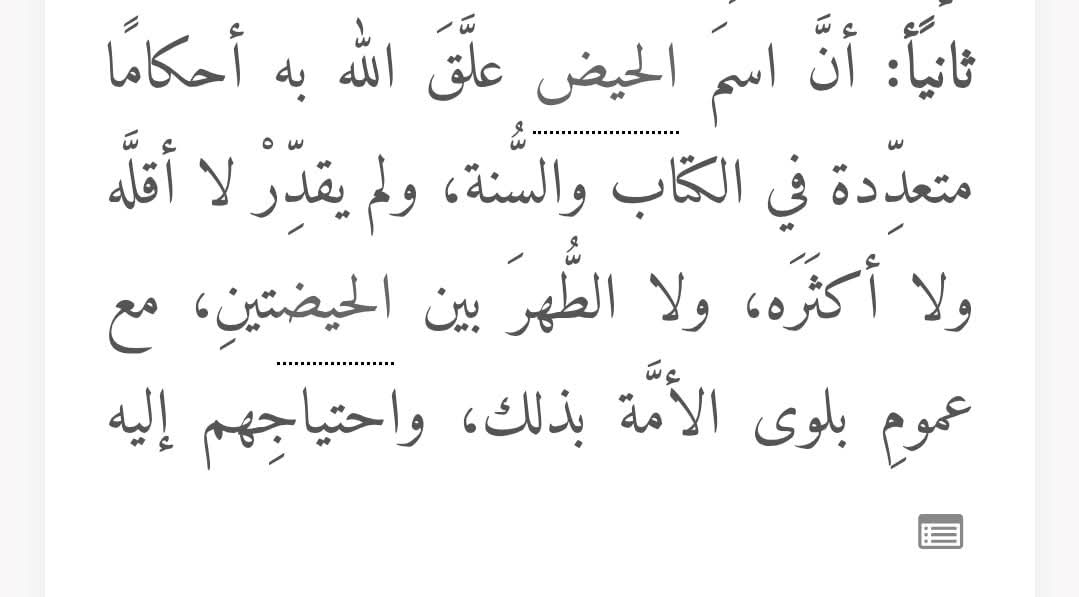 ثانيًا: أنَّ اسمَ الحيض علَّقَ الله به أحكامًا
متعدِّدة في الكتاب والسُّنة، ولم يقدِّرْ لا أقلَّه
ولا أكثَرَه، ولا الطُّهرَ بين الحيضتينِ، مع
عمومِ بلوى الأمَّة بذلك، واحتياجِهم إليه